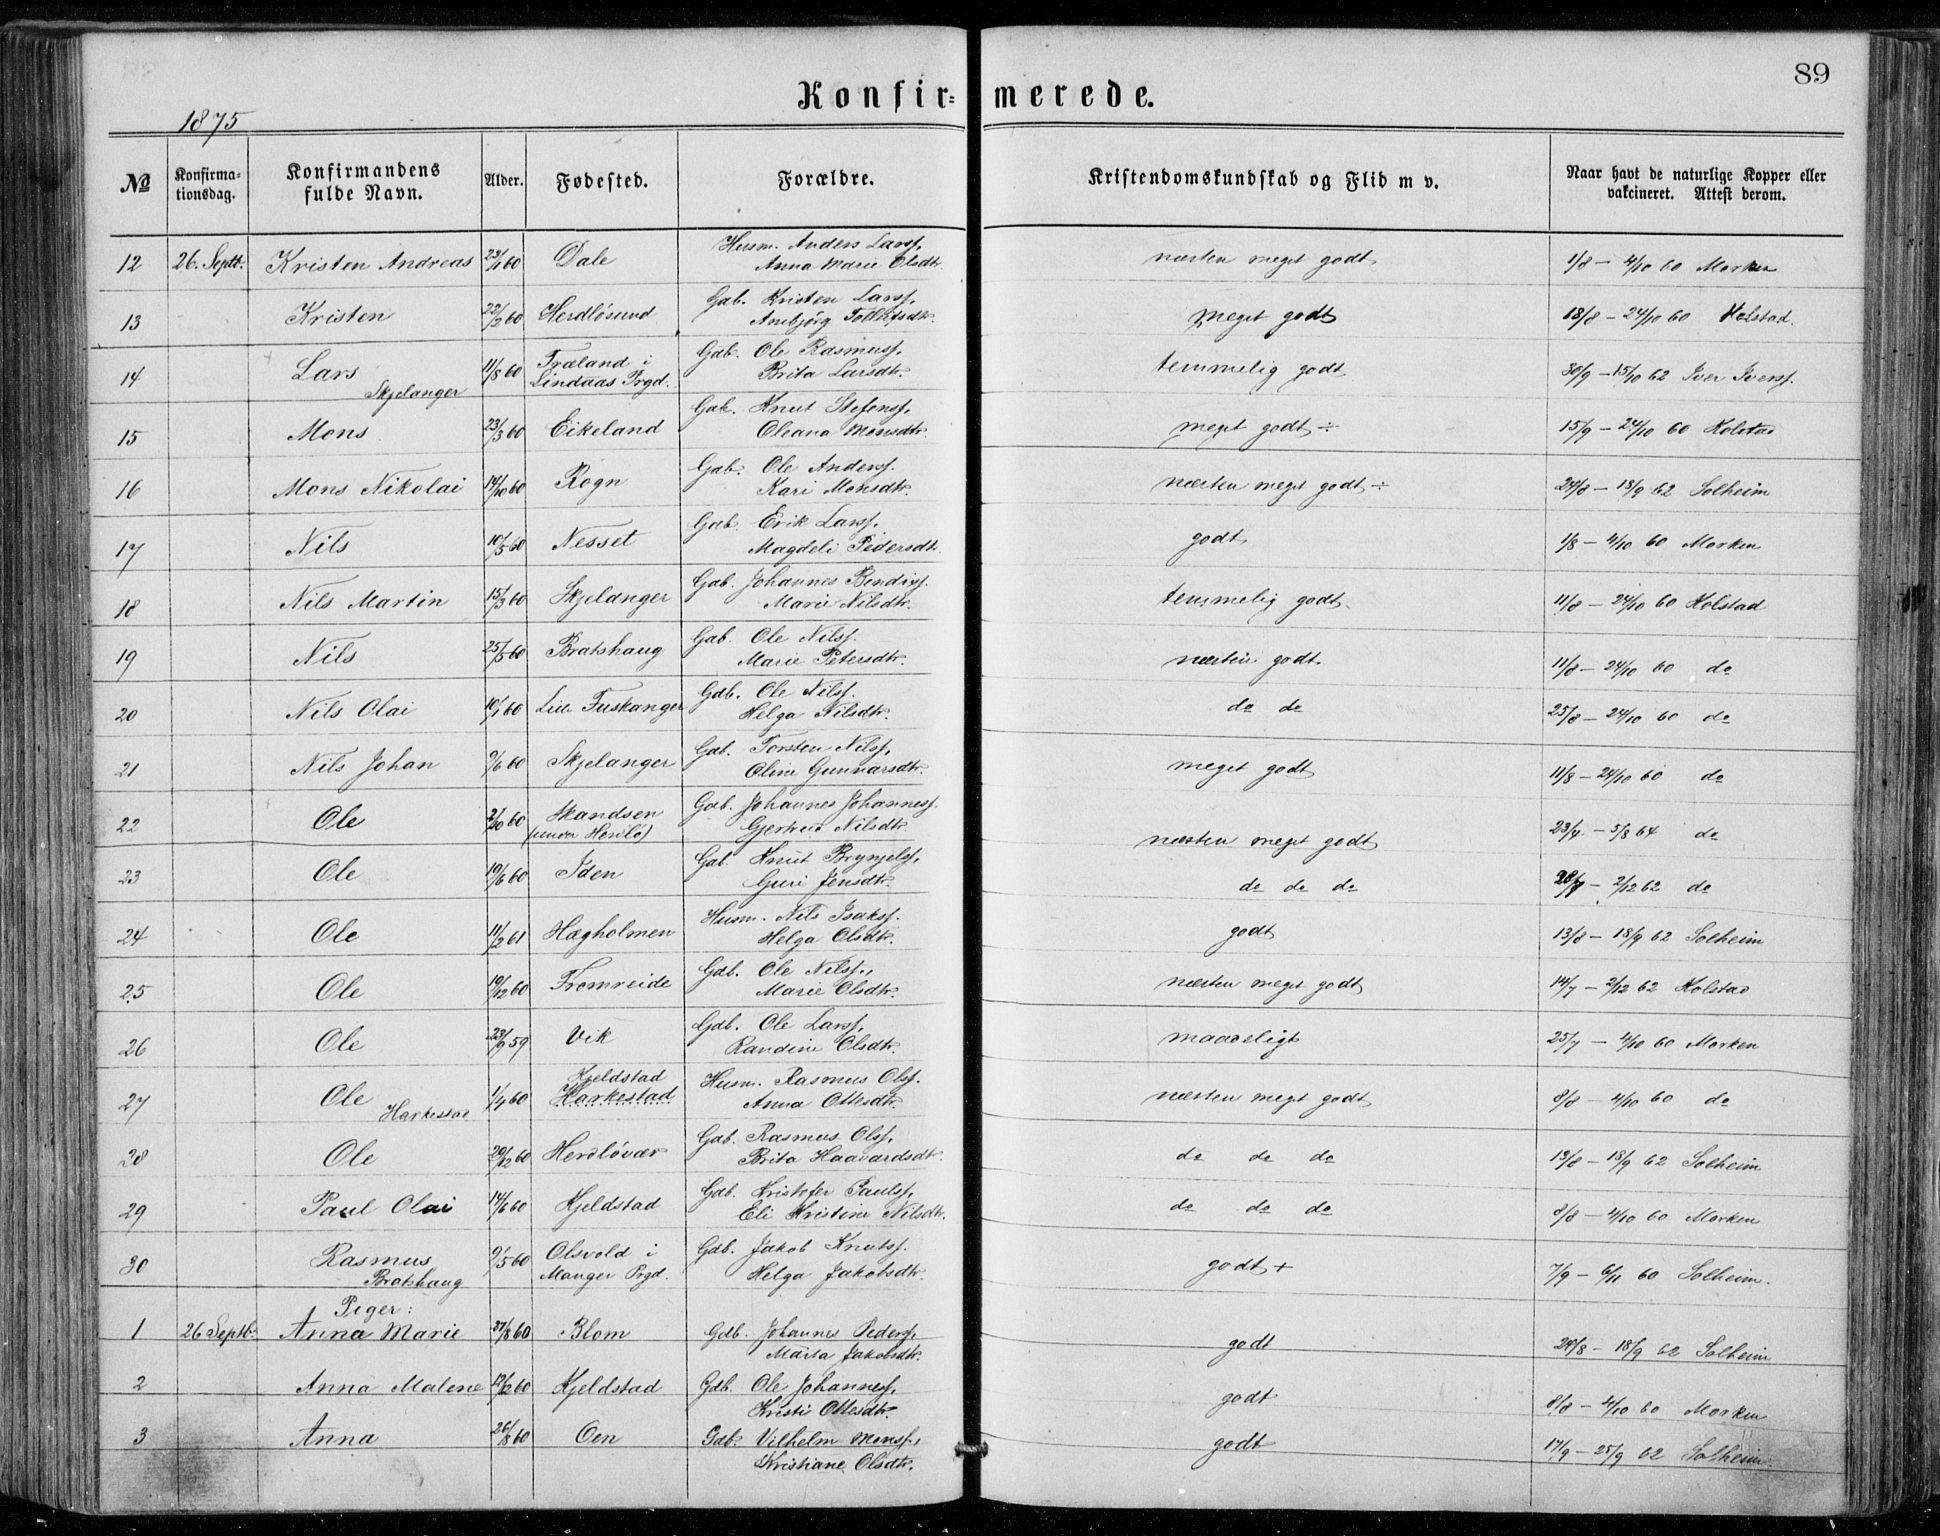 89
Konfir= merede.
1875
No Konfirma-tionsdag. Konfirmandens fulde Navn. Alder. Fødested. Forældre. Kristendomskundskab og Flid m v. Naar havt de naturlige Kopper eller vakcineret. Attest derom.
12 26. Septt. Kristen Andreas 23/1 60 Dale Husm. Anders Larss. næsten meget godt 1/8 – 4/10 60 Morken
Anna Marie Olsdtr.
13 Kristen 22/2 60 Herdlösund Gab. Kristen Larss. meget godt 18/8 – 24/10 60 Holstad.
Anbjörg Tollefsdtr.
14 Lars 11/8 60 Træland i Gab. Ole Rasmuss. temmelig godt 30/9 – 15/10 62 Iver Iverss.
Skjelanger Lindaas Prgd. Brita Larsdtr.
15 Mons 23/3 60 Eikeland Gab. Knut Stefenss. meget godt ÷ 15/9 – 24/10 60 Holstad
Oleana Monsdtr.
16 Mons Nikolai 14/10 60 Rogn Gab. Ole Anderss. næsten meget godt ÷ 24/8 – 18/9 62 Solheim
Kari Monsdtr.
17 Nils 10/5 60 Nesset Gab. Erik Larss. godt 1/8 – 4/10 60 Morken
Magdeli Pedersdtr.
18 Nils Martin 15/3 60 Skjelanger Gab. Johannes Bendixs. temmelig godt. 11/8 – 24/10 60 Holstad
Marie Nilsdtr.
19 Nils 25/5 60 Bratshaug Gab. Ole Nilss. næsten godt. 11/8 – 24/10 60 do
Marie Petersdtr.
20 Nils Olai 10/1 60 Lille Fuskanger Gdb. Ole Nilss. do do 25/8 – 24/10 60 do
Helga Nilsdtr.
21 Nils Johan 9/6 60 Skjelanger Gdb. Torsten Nilss. meget godt 11/8 – 24/10 60 do
Oline Gunnarsdtr.
22 Ole 2/10 60 Skandsen Gab. Johannes Johanness. næsten meget godt 23/4 – 5/8 64 do
(under Herdlö) Gjertrud Nilsdtr.
23 Ole 19/6 60 Iden Gab. Knut Brynjelss. do do do – 2/12 62 do
Guri Jensdtr.
24 Ole 11/2 61 Hægholmen Husm. Nils Isakss. godt 13/8 – 18/9 62 Solheim
Helga Olsdtr.
25 Ole 19/12 60 Tromreide Gdb. Ole Nilss., næsten meget godt 14/7 – 2/12 62 Holstad
Marie Olsdtr.
26 Ole 23/9 59 Vik Gdb. Ole Larss. maadeligt 25/7 – 4/10 60 Morken
Randine Olsdtr.
27 Ole 1/4 60 Kjeldstad Husm. Rasmus Olss. næsten meget godt 8/8 – 4/10 60 do
Harkestad Harkestad Anna Ottesdtr.
28 Ole 20/12 60 Herdlövær Gdb. Rasmus Olss. do do do 13/8 – 18/9 62 Solheim
Brita Haavardsdtr.
29 Paul Olai 14/6 60 Kjeldstad Gdb. Kristofer Paulss. do do do 8/8 – 4/10 60 Morken
Eli Kristine Nilsdtr.
30 Rasmus 9/5 60 Olsvold i Gdb. Jakob Knutss. godt + 7/9 – 6/11 60 Solheim.
Bratshaug Manger Prgd. Helga Jakobsdtr.
Piger:
1 26 Septb. Anna Marie 27/8 60 Blom Gdb. Johannes Peders. godt 24/8 – 18/9 62 Solheim
Marta Jakobsdtr.
2 Anna Malene 12/12 60 Kjeldstad Gdb. Ole Johanness. godt 8/8 – 4/10 60 Morken
Kristi Ottesdtr.
3 Anna 26/8 60 Oen Gdb. Vilhelm Monss., godt 17/9 – 25/9 62 Solheim
Kristiane Olsdtr.